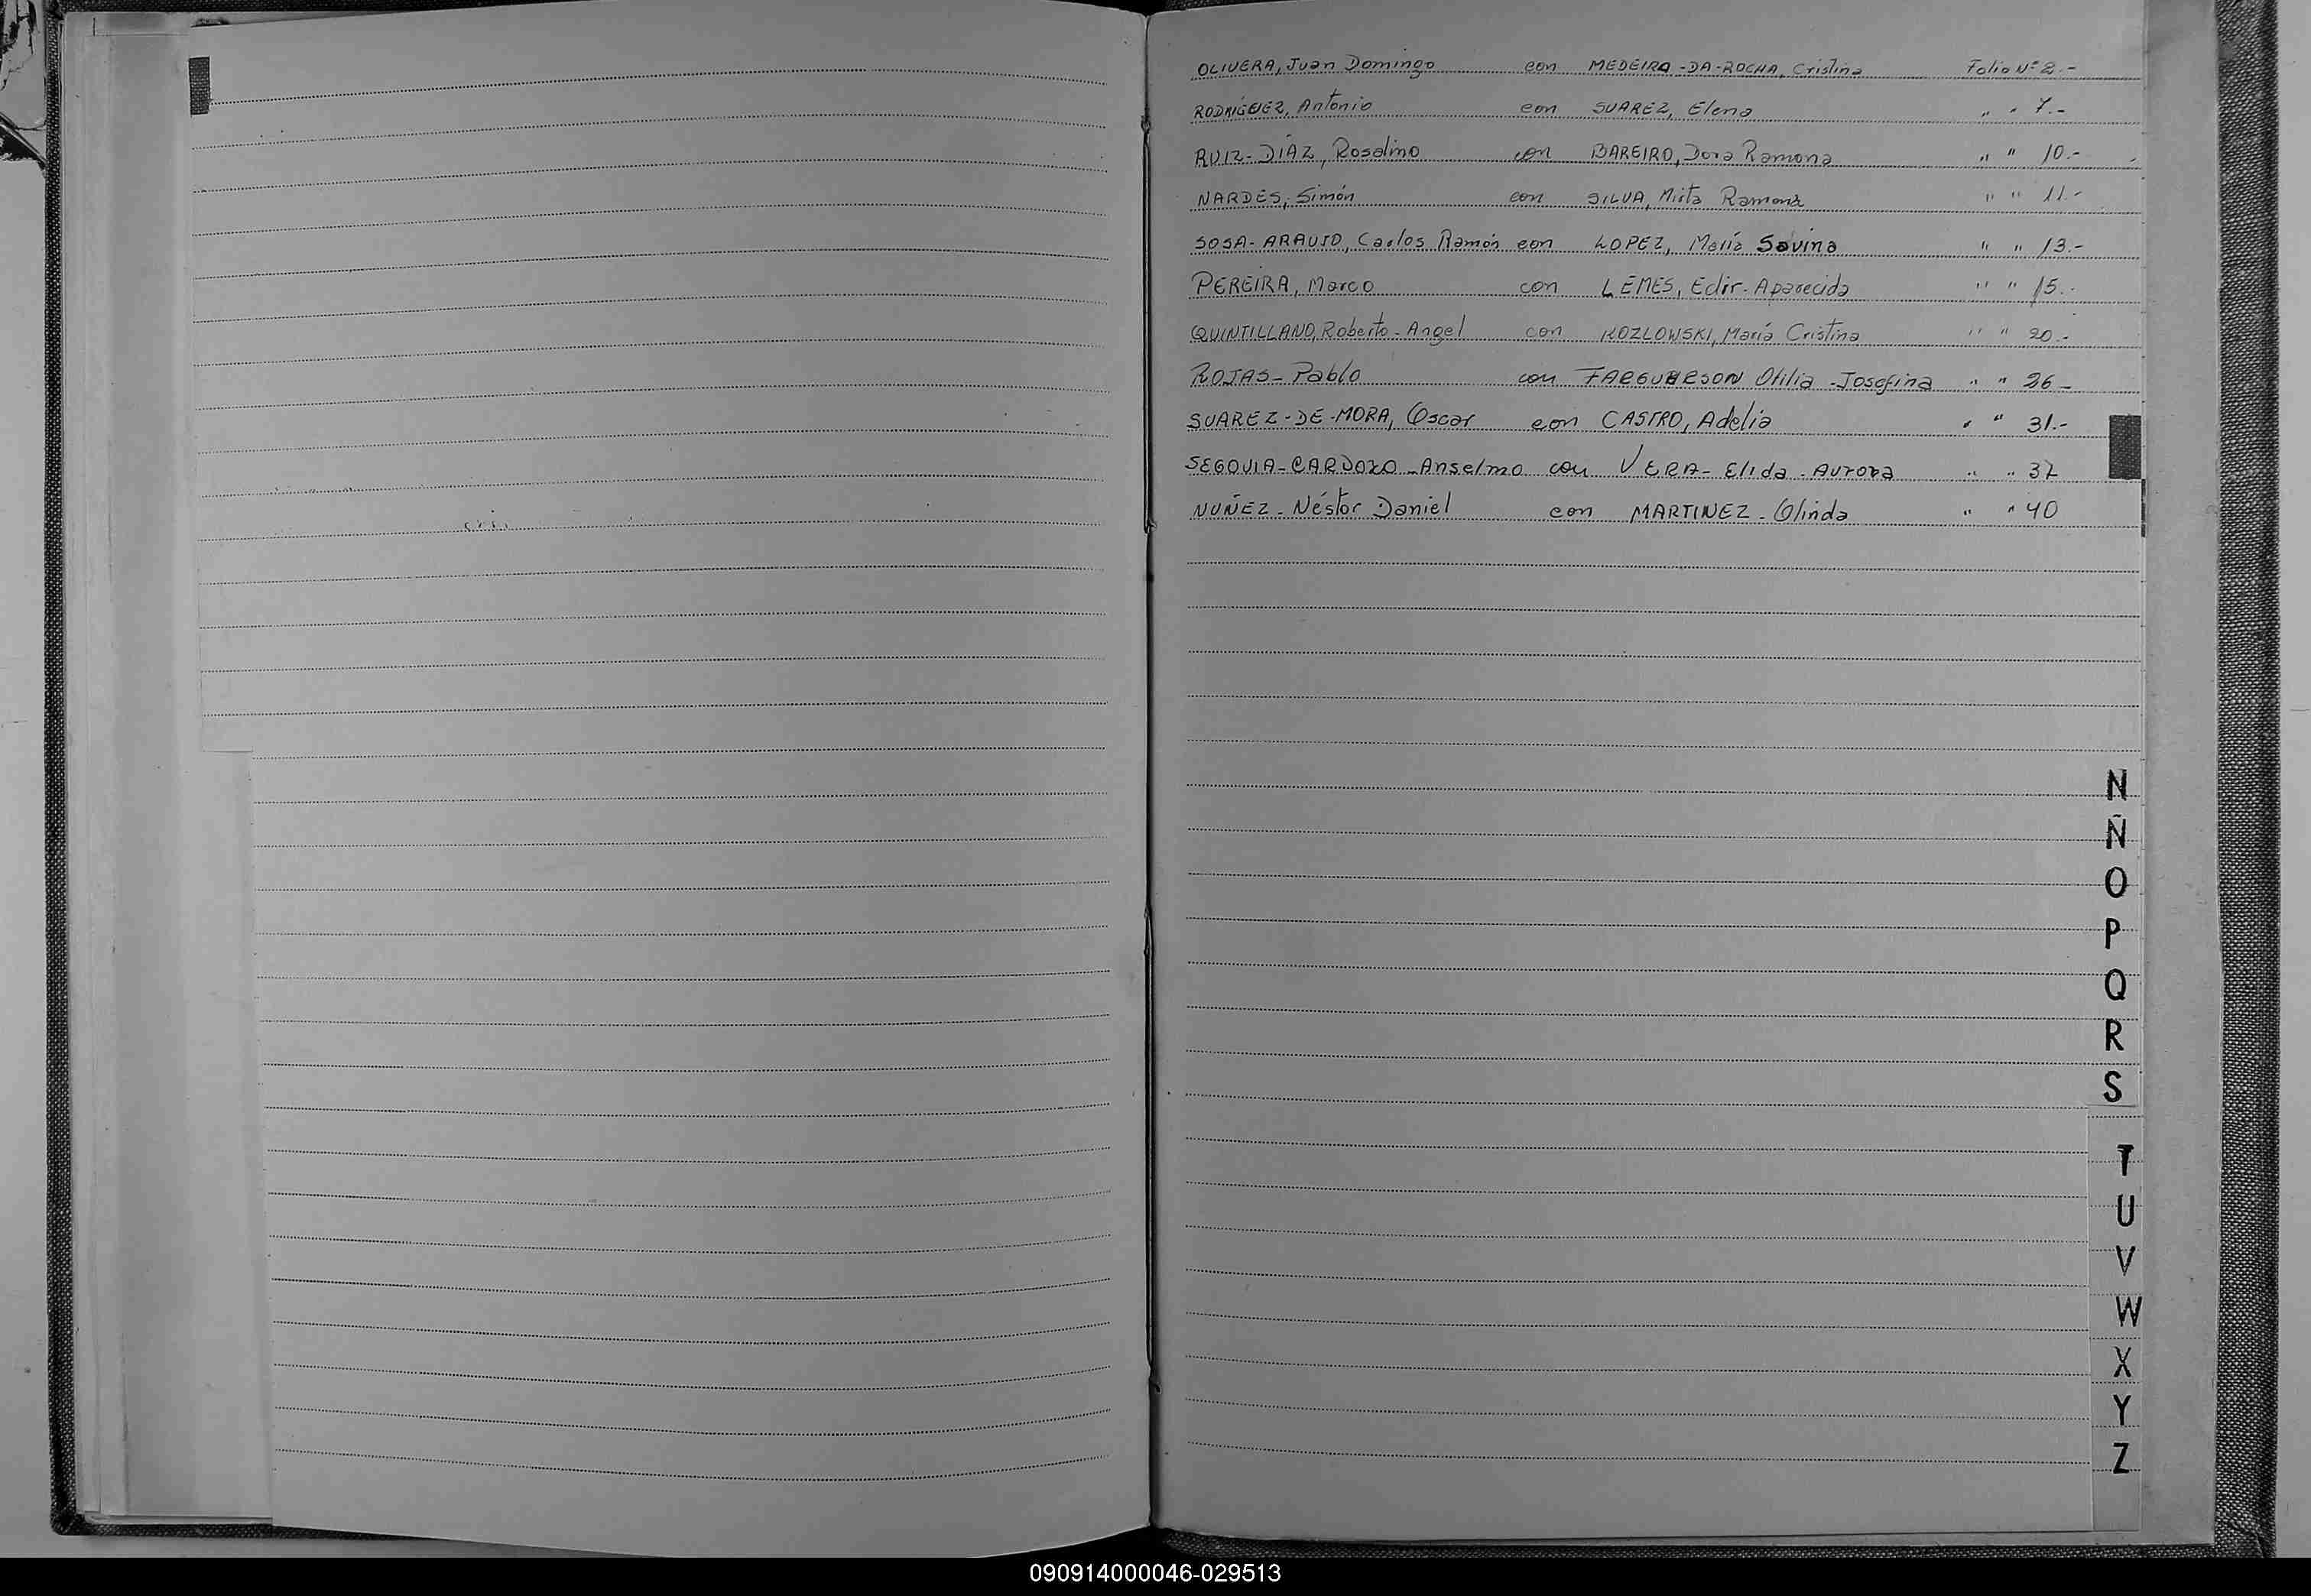 OLIVERA, Juan Domingo con MEDEIRA-DA-ROCHA, Cristina Folio Nº 2.-
RODRÍGUEZ, Antonio con SUAREZ, Elena " " 7.-
RUIZ-DÍAZ, Rosalino con BAREIRO, Dora Ramona " " 10.-
NARDES, Simón con SILVA, Mirta Ramona " " 11.-
SOSA-ARAUJO, Carlos Ramón con LOPEZ, María Savina " " 13.-
PEREIRA, Marco con LEMES, Edir-Aparecida " " 15.-
QUINTILLANO, Roberto-Angel con KOZLOWSKI, María Cristina " " 20.-
ROJAS-Pablo con FARGUERSON Otilia-Josefina " " 26-
SUAREZ-DE-MORA, Oscar con CASTRO, Adelia " " 31.-
SEGOVIA-CARDOZO-Anselmo con VERA-Elida-Aurora " " 37
NUÑEZ-Néstor Daniel con MARTINEZ-Olinda " " 40
N
Ñ
O
P
Q
R
S
T
U
V
W
X
Y
Z
090914000046-029513